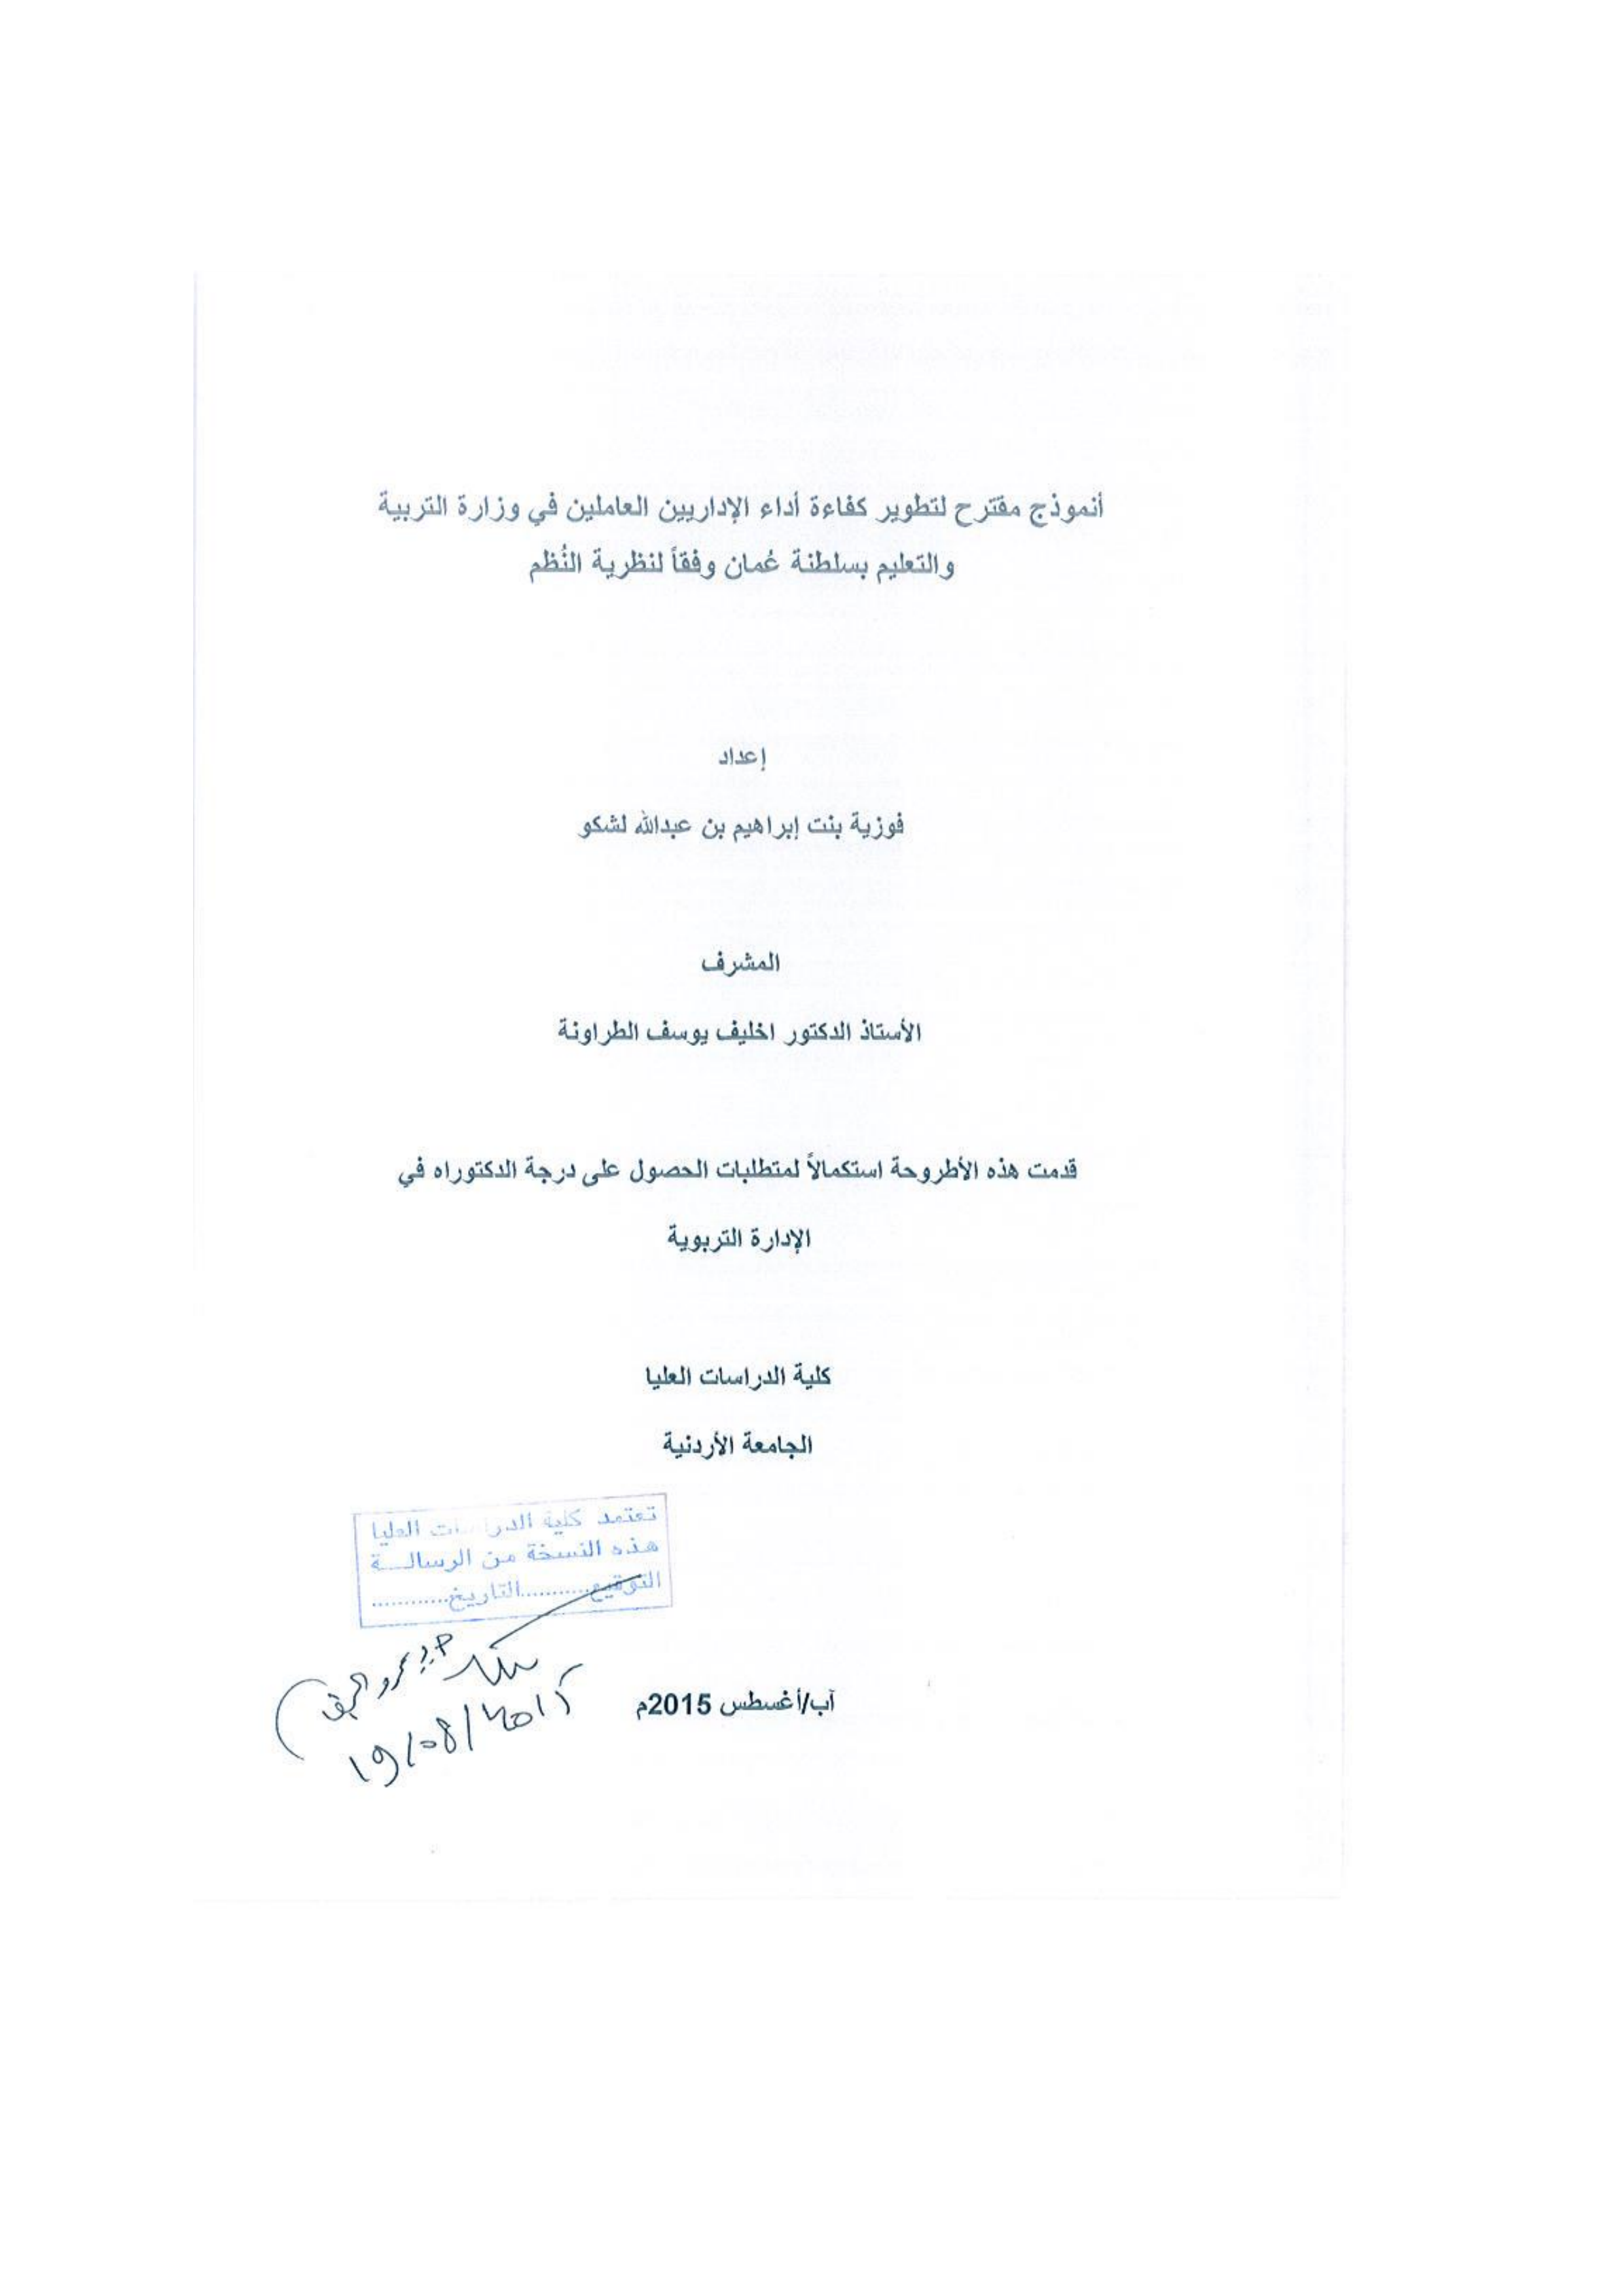 أنموذج مقترح لتطوير كفاءة أداء الإداريين العاملين في وزارة التربية
والتعليم بسلطنة عُمان وفقاً لنظرية النُظم
إعداد
فوزية بنت إبراهيم بن عبدالله لشكو
المشرف
الأستاذ الدكتور اخليف يوسف الطراونة
قدمت هذه الأطروحة استكمالاً لمتطلبات الحصول على درجة الدكتوراه في
الإدارة التربوية
كلية الدراسات العليا
الجامعة الأردنية
تعتمد كلية الدراسات العليا
هذه النسخة من الرسالـــة
التوقيع............التاريخ............
آب/أغسطس 2015م
19/08/2015